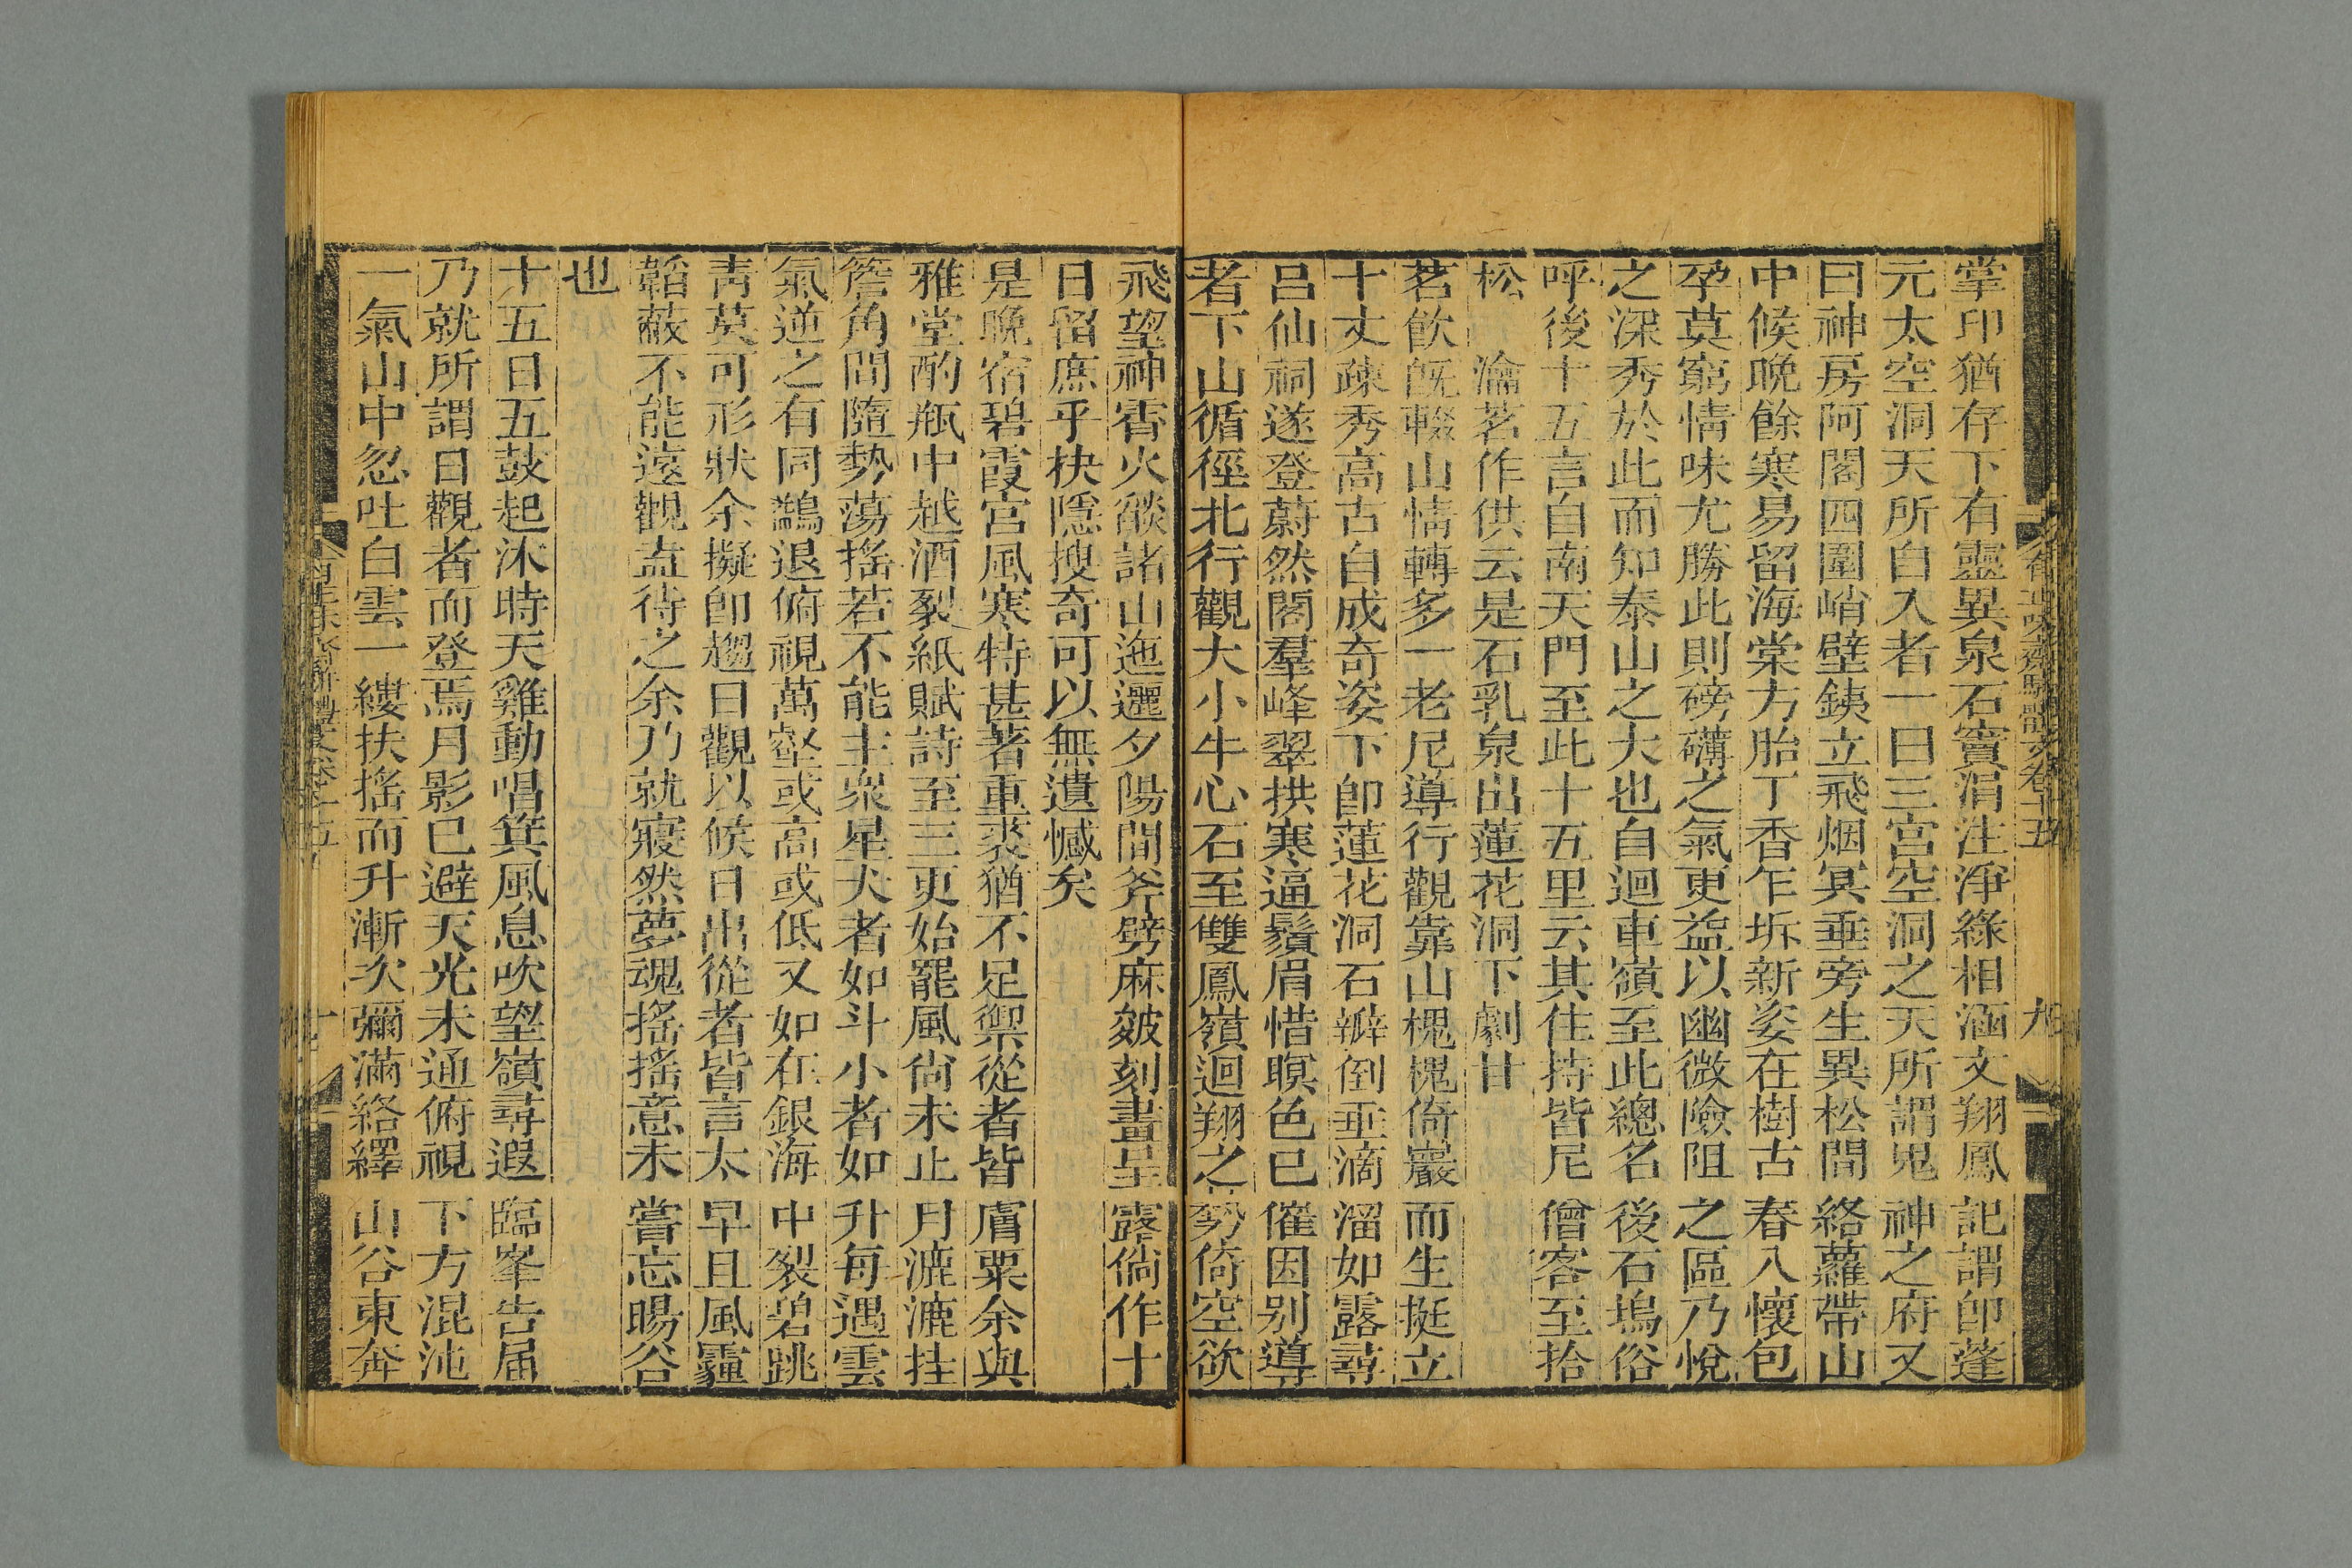 掌印猶存下有靈異泉石竇涓注淨綠相涵文翔鳳記謂卽蓬
元太空洞天所自入者一曰三宮空洞之天所謂鬼神之府又
曰神房阿閣四圍峭壁銕立飛烟冥垂旁生異松間絡蘿帶山
中候晚餘寒易留海棠方胎丁香乍坼新姿在樹古春入懷包
孕莫窮情味尤勝此則磅礴之氣更益以幽微險阻之區乃悅
之深秀於此而知泰山之大也自迴車嶺至此總名後石塢俗
呼後十五言自南天門至此十五里云其住持皆尼僧客至拾
松 瀹茗作供云是石乳泉出蓮花洞下劇甘
茗飮旣輟山情轉多一老尼導行觀靠山槐槐倚巖而生挺立
十丈疎秀高古自成奇姿下卽蓮花洞石瓣倒垂滴溜如露尋
呂仙祠遂登蔚然閣羣峰翠拱寒逼鬚眉惜暝色已催因別導
者下山循徑北行觀大小牛心石至雙鳳嶺迴翔之勢倚空欲
飛望神霄火燄諸山迤邐夕陽間斧劈麻皴刻畫呈露倘作十
日留庶乎抉隱搜奇可以無遺憾矣
是晚宿碧霞宮風寒特甚著重裘猶不足禦從者皆膚粟余與
雅堂酌瓶中越酒裂紙賦詩至三更始罷風尙未止月漉漉挂
簷角間隨勢蕩搖若不能主衆星大者如斗小者如升每遇雲
氣逆之有同鷁退俯視萬壑或高或低又如在銀海中裂碧跳
靑莫可形狀余擬卽趨日觀以候日出從者皆言太早且風霾
韜蔽不能遠觀盍待之余乃就寢然夢魂搖搖意未嘗忘暘谷
也
十五日五鼓起沐時天雞動唱箕風息吹望嶺尋遐臨峯告届
乃就所謂日觀者而登焉月影已避天光未通俯視下方混沌
一氣山中忽吐白雲一縷扶搖而升漸次彌滿絡繹山谷東奔